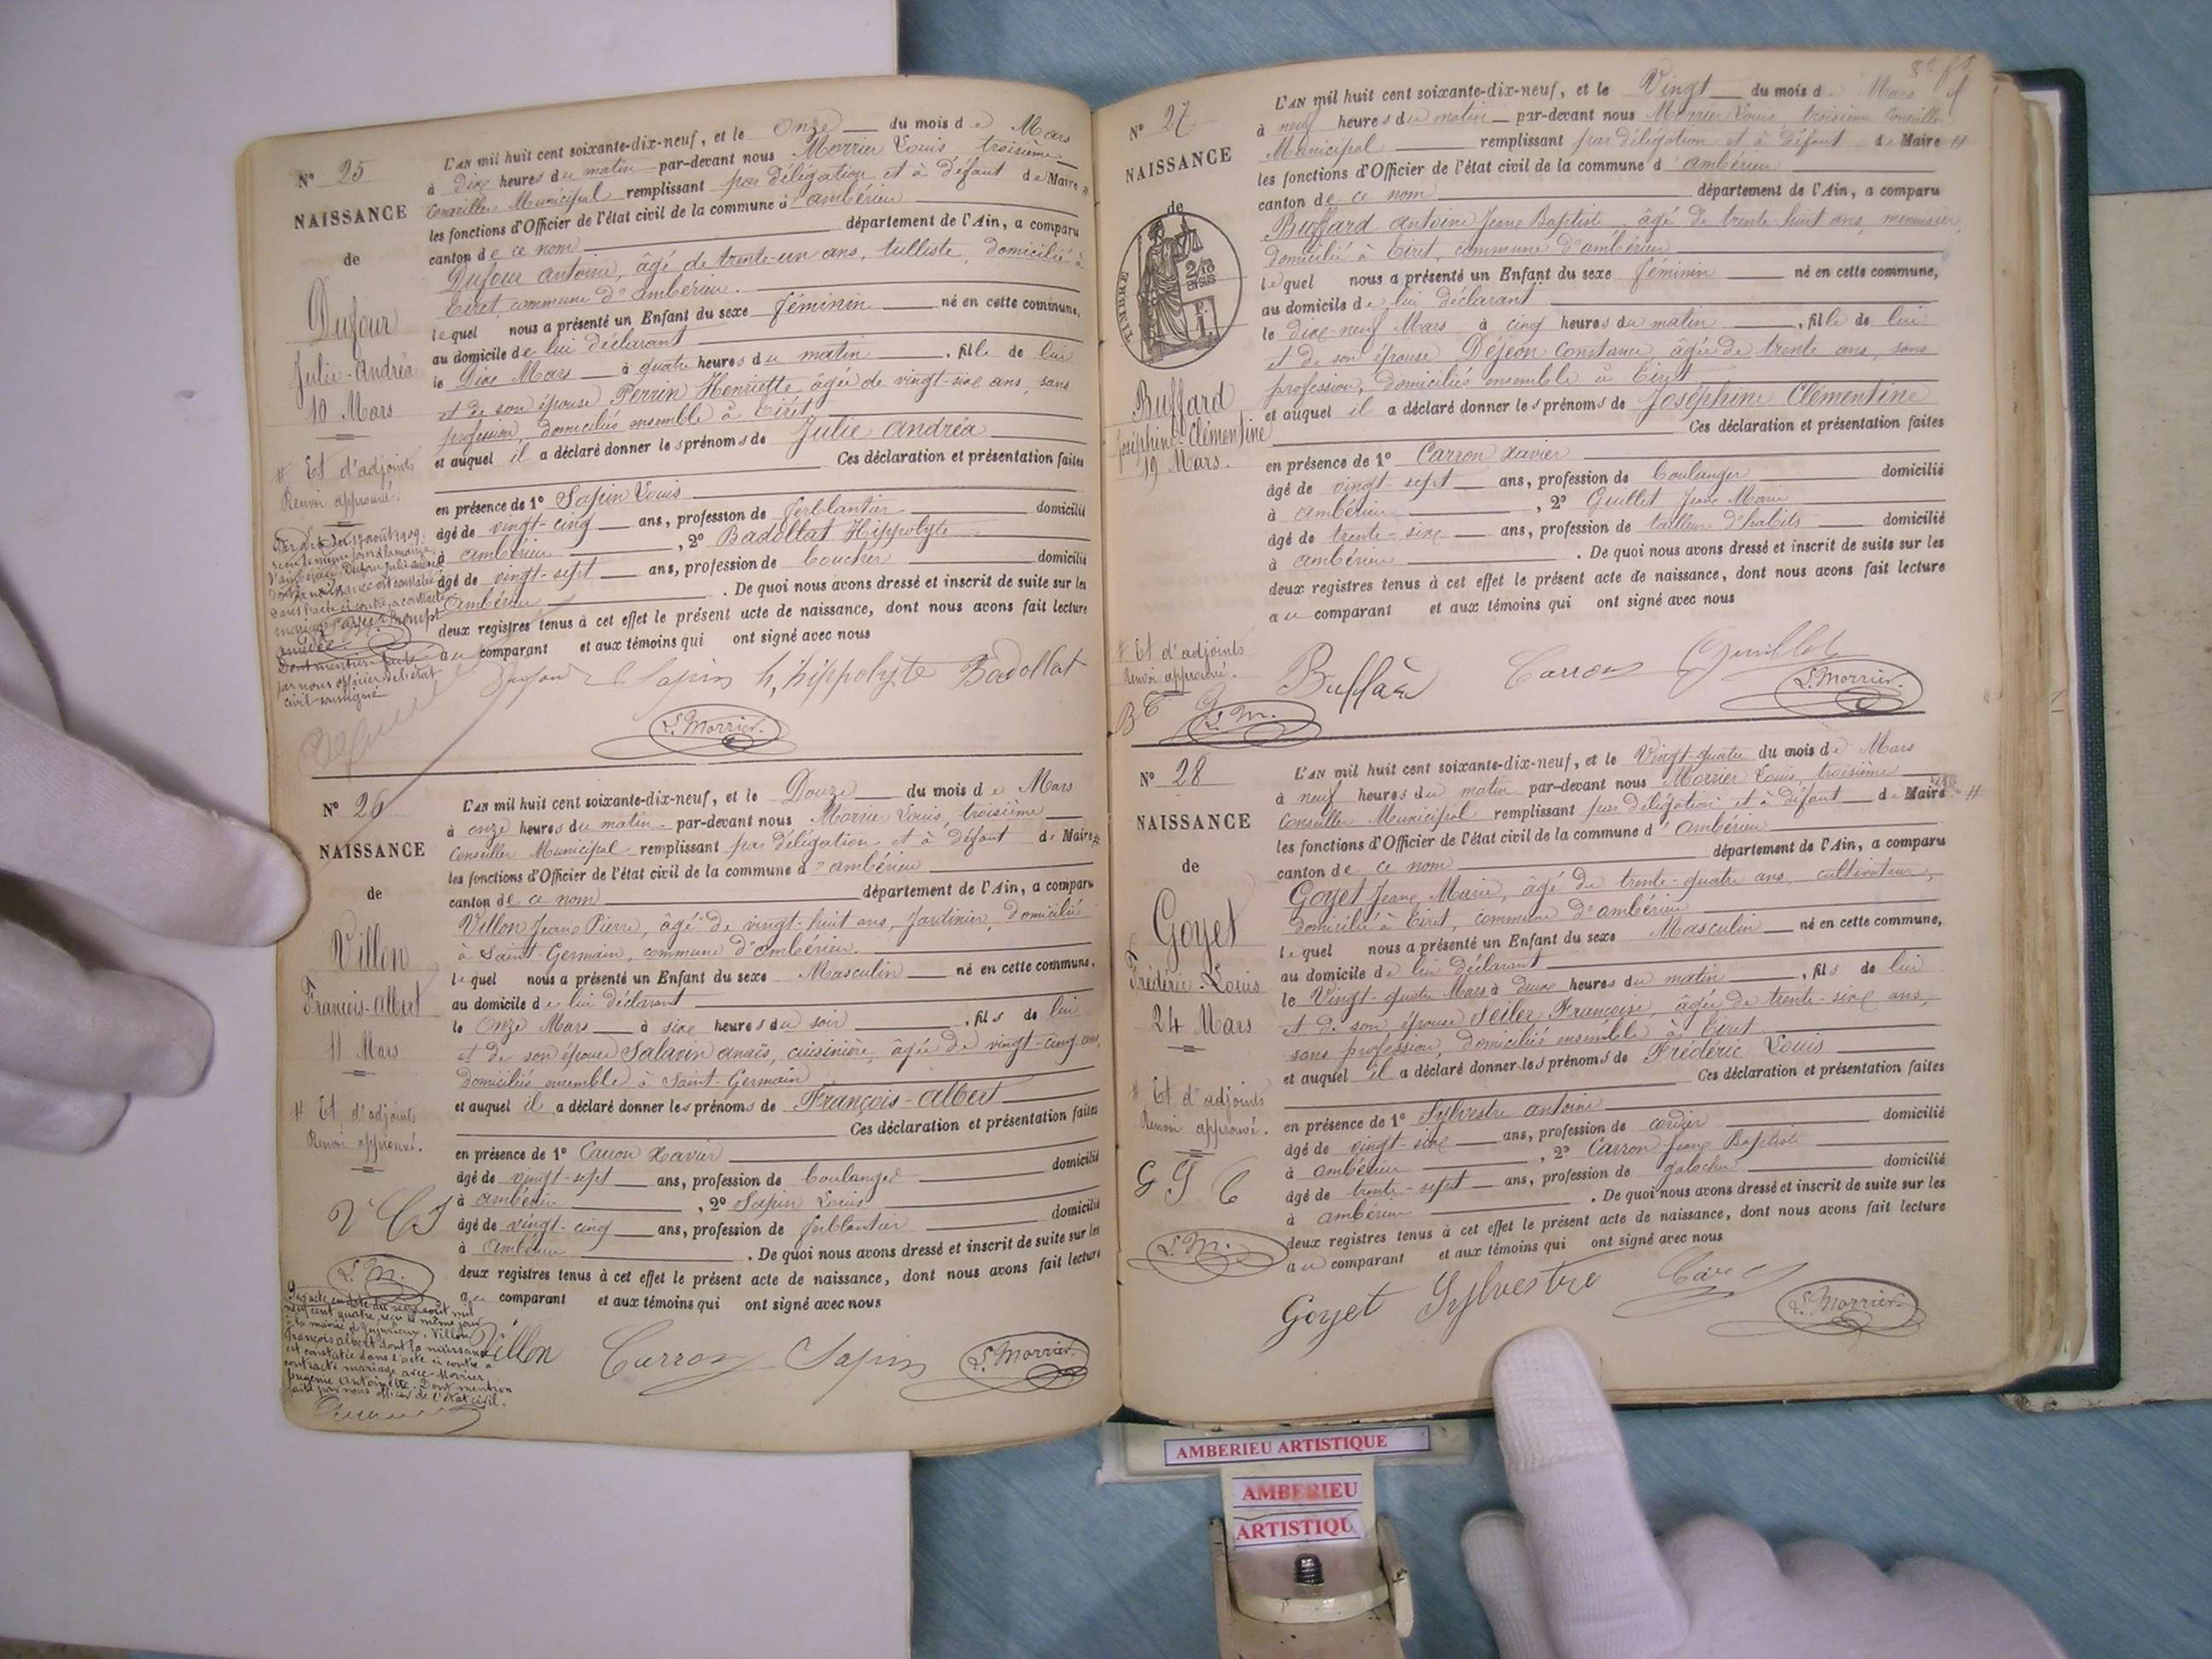 N° 25
NAISSANCE
de
Dufour
Julie-Andréa
10 Mars
# Et d'adjoints
Renvoi approuvé.
L'AN mil huit cent soixante-dix-neuf, et le Onze du mois de Mars
à dix heures du matin par-devant nous Morrier Louis, troisième
Conseiller Municipal remplissant par délégation et à défaut de Maire #
les fonctions d'Officier de l'état civil de la commune d'ambérieu
canton de ce nom département de l'Ain, a comparu
Dufour Antoine, âgé de trente-un ans, tulliste, domicilié à
Tiret, commune d'ambérieu.
lequel nous a présenté un Enfant du sexe féminin né en cette commune,
au domicile de lui déclarant
le Dix Mars à quatre heures du matin, fille de lui
et de son épouse Perrin Henriette, âgée de vingt-six ans, sans
profession, domiciliés ensemble à Tiret
et auquel il a déclaré donner les prénoms de Julie andréa
Ces déclaration et présentation faites
en présence de 1° Sapin Louis
âgé de vingt-cinq ans, profession de ferblantier domicilié
à ambérieu, 2° Badollat Hippolyte
âgé de vingt-sept ans, profession de boucher domicilié
Ambérieu. De quoi nous avons dressé et inscrit de suite sur les
deux registres tenus à cet effet le présent acte de naissance, dont nous avons fait lecture
au comparant et aux témoins qui ont signé avec nous
Dont mention faite
par nous officier de l'état
civil soussigné
Dufour Sapin h, hippolyte Badollat
L. Morrier.
N° 26
NAISSANCE
de
Villon
François-Albert
11 Mars
# Et d'adjoints
Renvoi approuvé.
V C S
L. M.
L'AN mil huit cent soixante-dix-neuf, et le Douze du mois de Mars
à onze heures du matin par-devant nous Morrier Louis, troisième
Conseiller Municipal remplissant par délégation et à défaut de Maire #
les fonctions d'Officier de l'état civil de la commune d'ambérieu
canton de ce nom département de l'Ain, a comparu
Villon Jean Pierre, âgé de vingt-huit ans, Jardinier, domicilié
à Saint-Germain, commune d'ambérieu.
lequel nous a présenté un Enfant du sexe Masculin né en cette commune,
au domicile de lui déclarant
le Onze Mars à six heures du soir, fils de lui
et de son épouse Salavin anaïs, cuisinière, âgée de vingt-cinq ans,
domiciliés ensemble à Saint-Germain
et auquel il a déclaré donner les prénoms de François-Albert
Ces déclaration et présentation faites
en présence de 1° Carron Xavier
âgé de vingt-sept ans, profession de boulanger domicilié
à ambérieu, 2° Sapin Louis
âgé de vingt-cinq ans, profession de ferblantier domicilié
à Ambérieu. De quoi nous avons dressé et inscrit de suite sur les
deux registres tenus à cet effet le présent acte de naissance, dont nous avons fait lecture
au comparant et aux témoins qui ont signé avec nous
Par acte en date du seize août mil
neuf cent quatre, reçu le même jour
à la mairie d'Jujurieux, Villon
François albert dont la naissance
est constatée dans l'acte ci contre a
contracté mariage avec Morrier
Eugénie Antoinette. Dont mention
faite par nous officier de l'état civil.
Villon Carron Sapin L. Morrier.
N° 27
NAISSANCE
de
TIMBRE
2/10
EN SUS
Buffard
Joséphine-Clémentine
19 Mars.
# Et d'adjoints
Renvoi approuvé.
B C G
L. M.
L'AN mil huit cent soixante-dix-neuf, et le Vingt du mois de Mars
à neuf heures du matin par-devant nous Morrier Louis, troisième Conseiller
Municipal remplissant par délégation et à défaut de Maire #
les fonctions d'Officier de l'état civil de la commune d'ambérieu
canton de ce nom département de l'Ain, a comparu
Buffard antoine Jean Baptiste âgé de trente-huit ans, menuisier,
domicilié à Tiret, commune d'ambérieu
lequel nous a présenté un Enfant du sexe féminin né en cette commune,
au domicile de lui déclarant
le dix-neuf Mars à cinq heures du matin, fille de lui
et de son épouse Déjean Constance, âgée de trente ans, sans
profession, domiciliés ensemble à Tiret
et auquel il a déclaré donner les prénoms de Joséphine Clémentine
Ces déclaration et présentation faites
en présence de 1° Carron Xavier
âgé de vingt-sept ans, profession de boulanger domicilié
à ambérieu, 2° Guillet Jean Marie
âgé de trente-six ans, profession de tailleur d'habits domicilié
à ambérieu. De quoi nous avons dressé et inscrit de suite sur les
deux registres tenus à cet effet le présent acte de naissance, dont nous avons fait lecture
au comparant et aux témoins qui ont signé avec nous
Carron Guillet
L. Morrier.
N° 28
NAISSANCE
de
Goyet
Frédéric-Louis
24 Mars
# Et d'adjoints
Renvoi approuvé.
G S C
L. M.
L'AN mil huit cent soixante-dix-neuf, et le Vingt-quatre du mois de Mars
à neuf heures du matin par-devant nous Morrier Louis, troisième
Conseiller Municipal remplissant par délégation et à défaut de Maire #
les fonctions d'Officier de l'état civil de la commune d'Ambérieu
canton de ce nom département de l'Ain, a comparu
Goyet Jean Marie, âgé de trente-quatre ans, cultivateur,
domicilié à Tiret, commune d'ambérieu
lequel nous a présenté un Enfant du sexe Masculin né en cette commune,
au domicile de lui déclarant
le Vingt-quatre Mars à deux heures du matin, fils de lui
et de son épouse Seiler Françoise, âgée de trente-six ans,
sans profession, domiciliés ensemble à Tiret
et auquel il a déclaré donner les prénoms de Frédéric Louis
Ces déclaration et présentation faites
en présence de 1° Sylvestre antoine
âgé de vingt-six ans, profession de cordier domicilié
à ambérieu, 2° Carron Jean Baptiste
âgé de trente-sept ans, profession de galocher domicilié
à ambérieu. De quoi nous avons dressé et inscrit de suite sur les
deux registres tenus à cet effet le présent acte de naissance, dont nous avons fait lecture
au comparant et aux témoins qui ont signé avec nous
Goyet Sylvestre L. Morrier
AMBERIEU ARTISTIQUE
AMBERIEU
ARTISTIQU